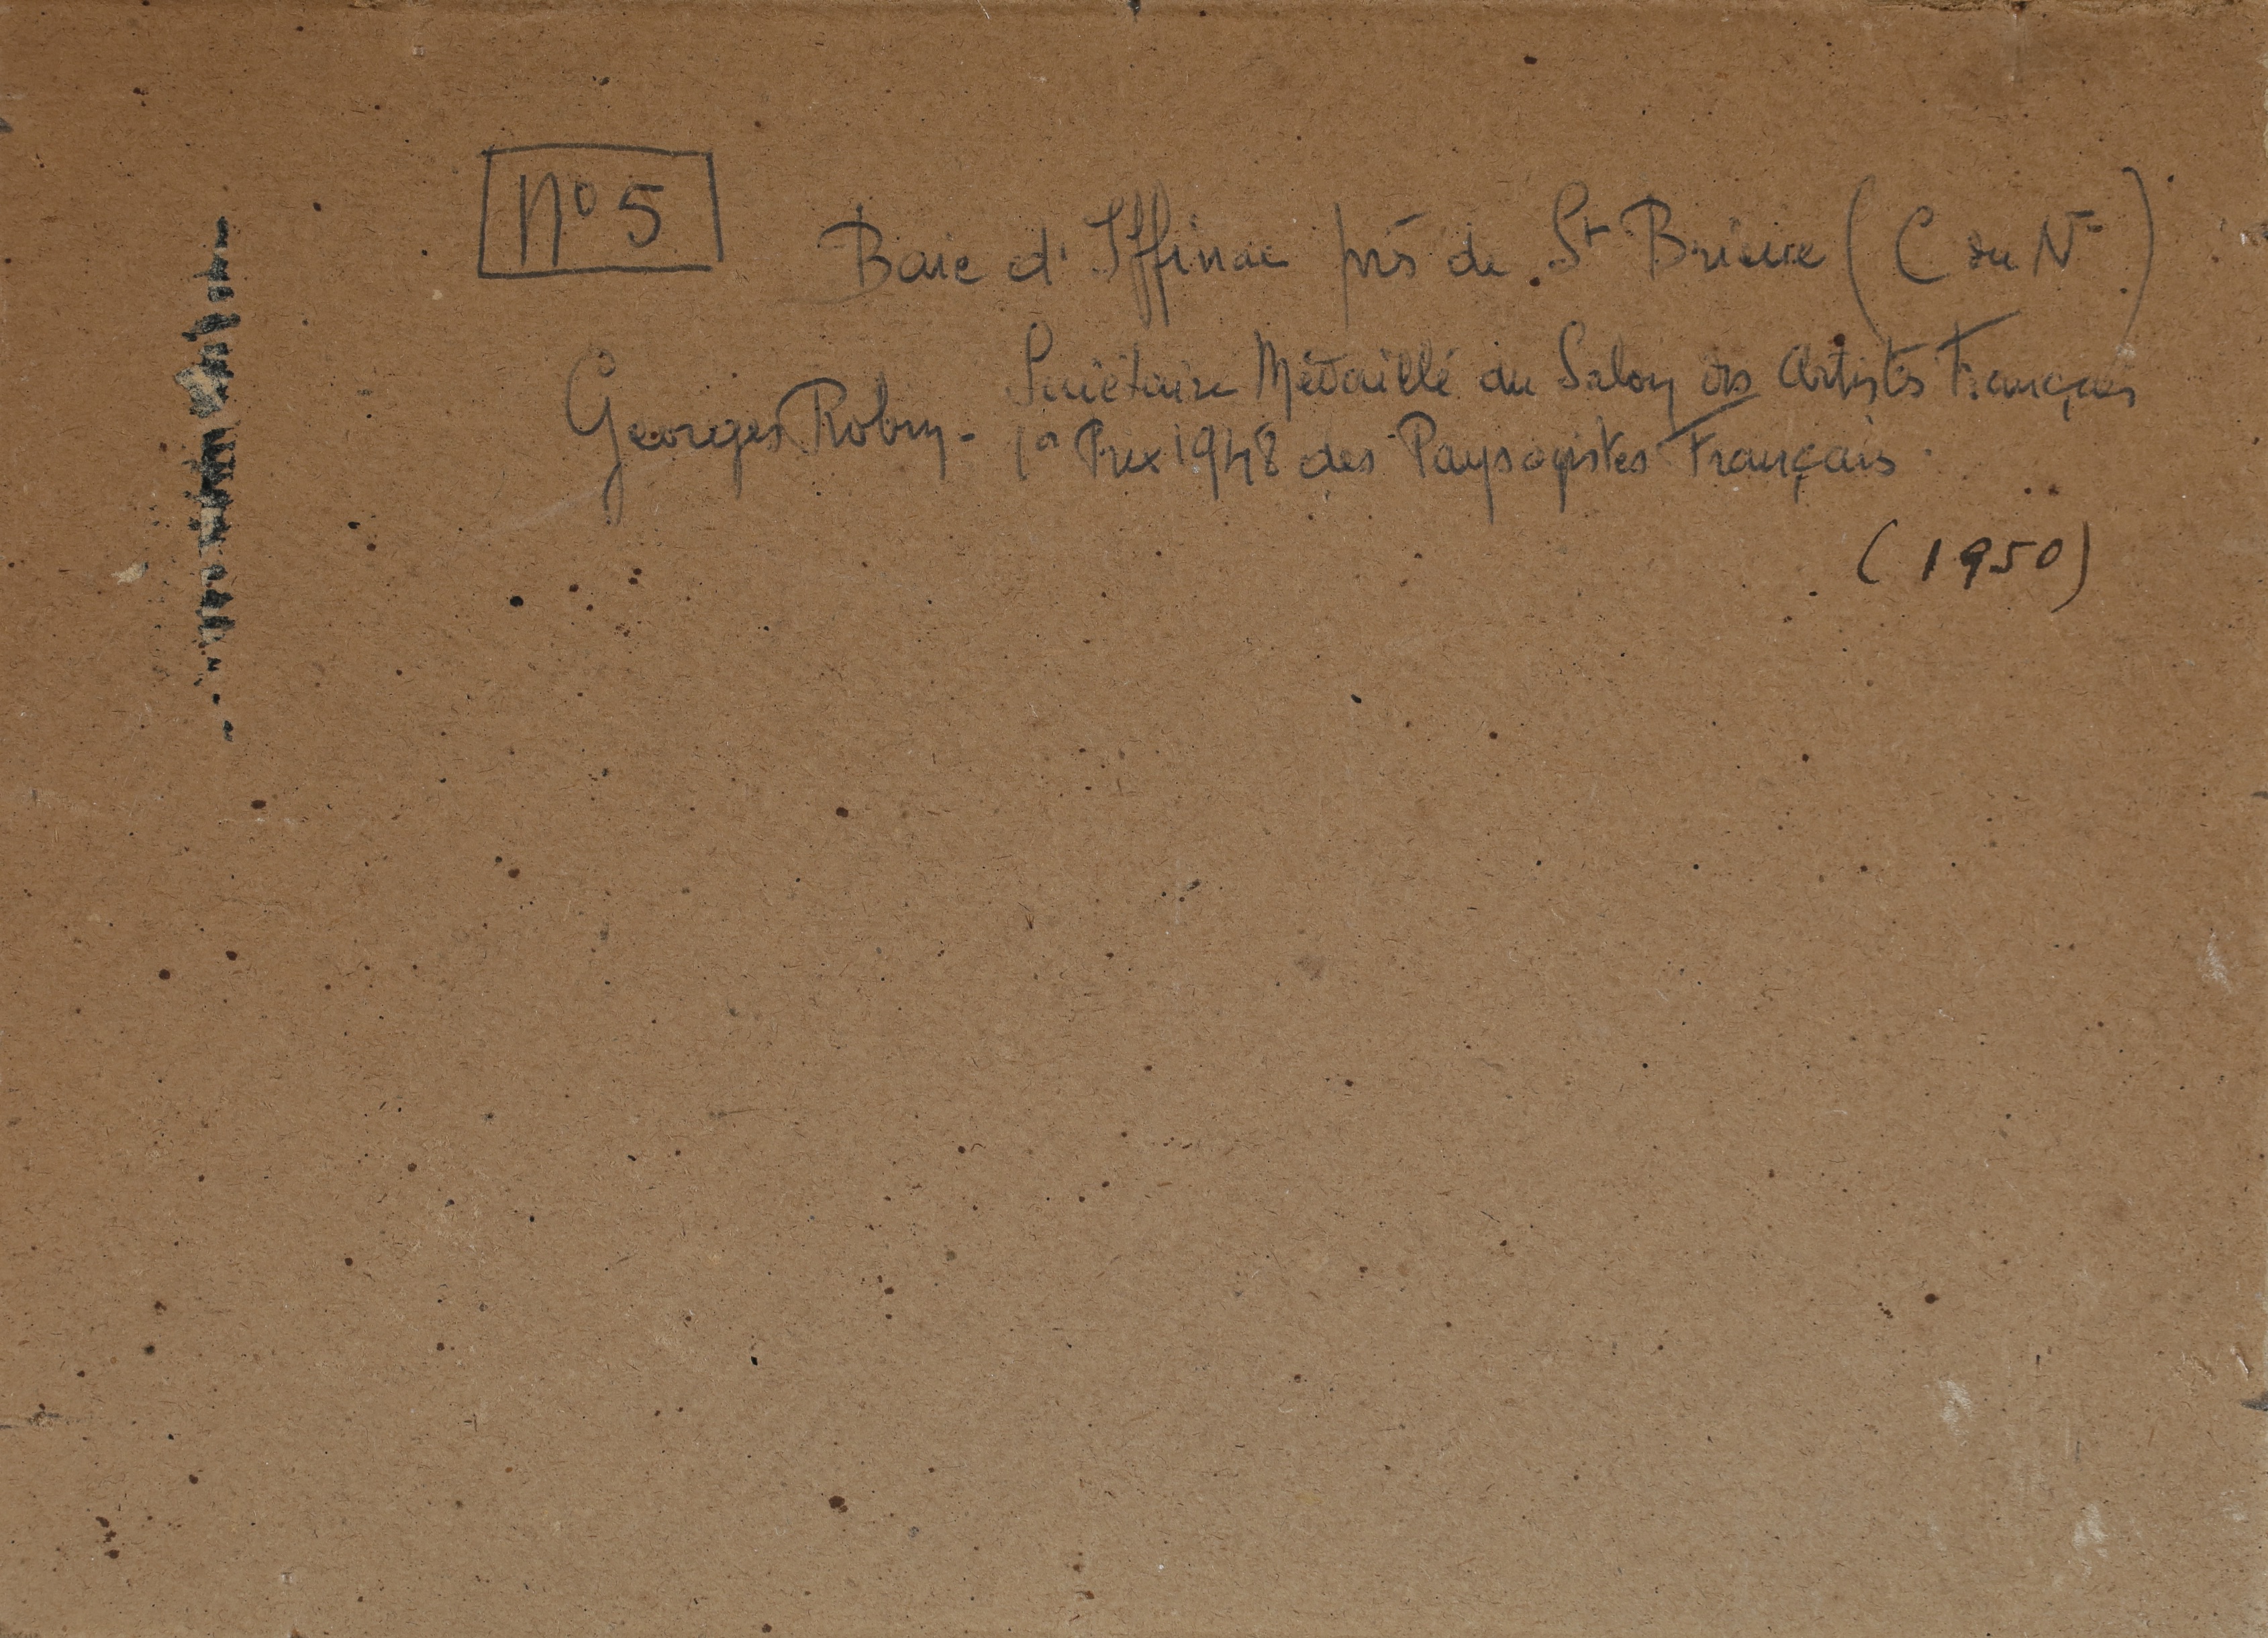 N° 5
Baie d'Iffinac près de St Brieuc (C du N)
Sociétaire Médaillé du Salon des Artistes Français
Georges Robin - 1er Prix 1948 des Paysagistes Français
(1950)